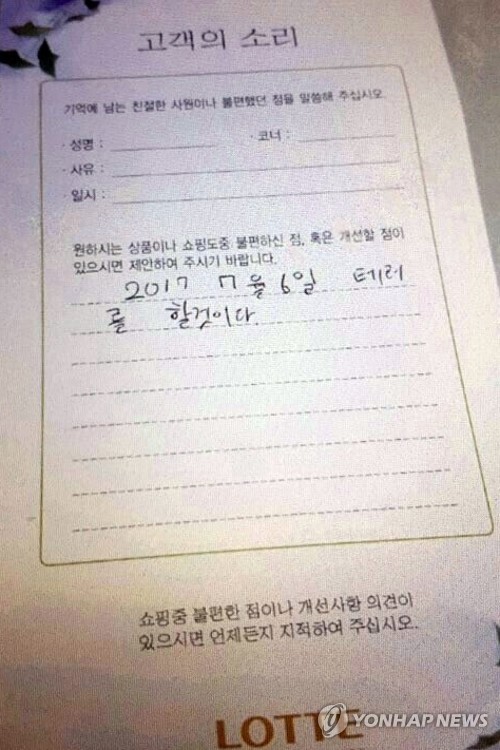 고객의 소리
기억에 남는 친절한 사원이나 불편했던 점을 말씀해 주십시오.
· 성명 : · 코너 :
· 사유 :
· 일시 :
원하시는 상품이나 쇼핑도중 불편하신 점, 혹은 개선할 점이
있으시면 제안하여 주시기 바랍니다.
2017 7월 6일 테러
를 할것이다.
쇼핑중 불편한 점이나 개선사항 의견이
있으시면 언제든지 지적하여 주십시오.
LOTTE
YONHAP NEWS